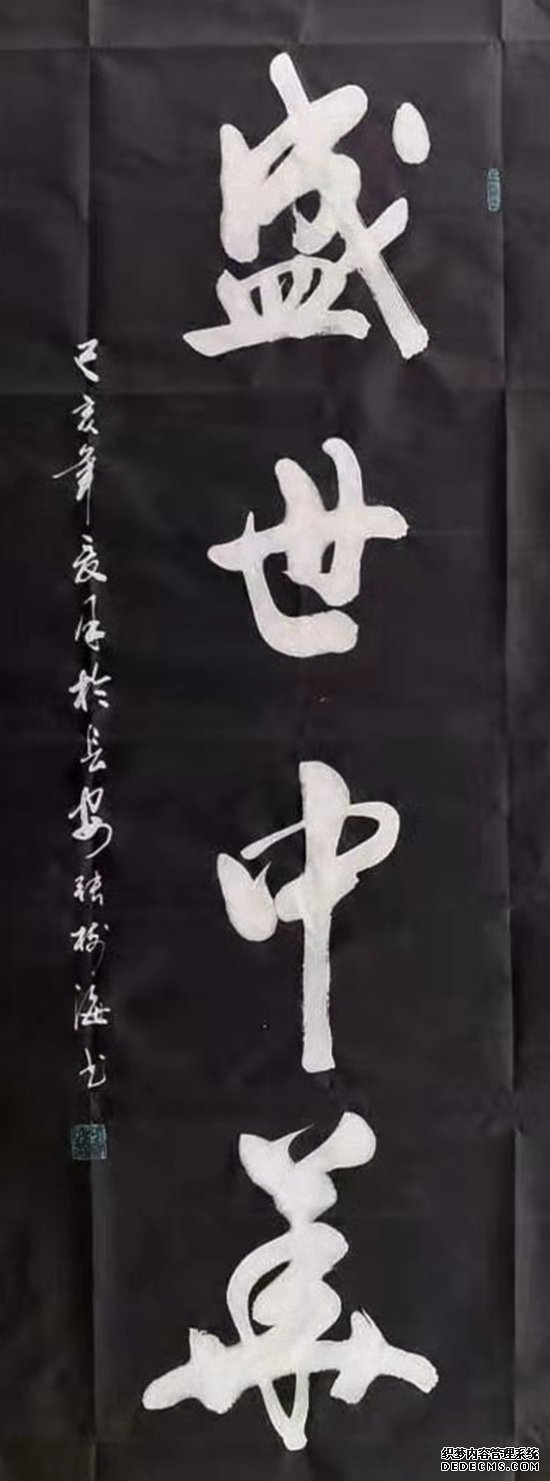 盛世中華
己亥年夏月於長安張樹海书
织梦内容管理系统
DEDECMS.COM